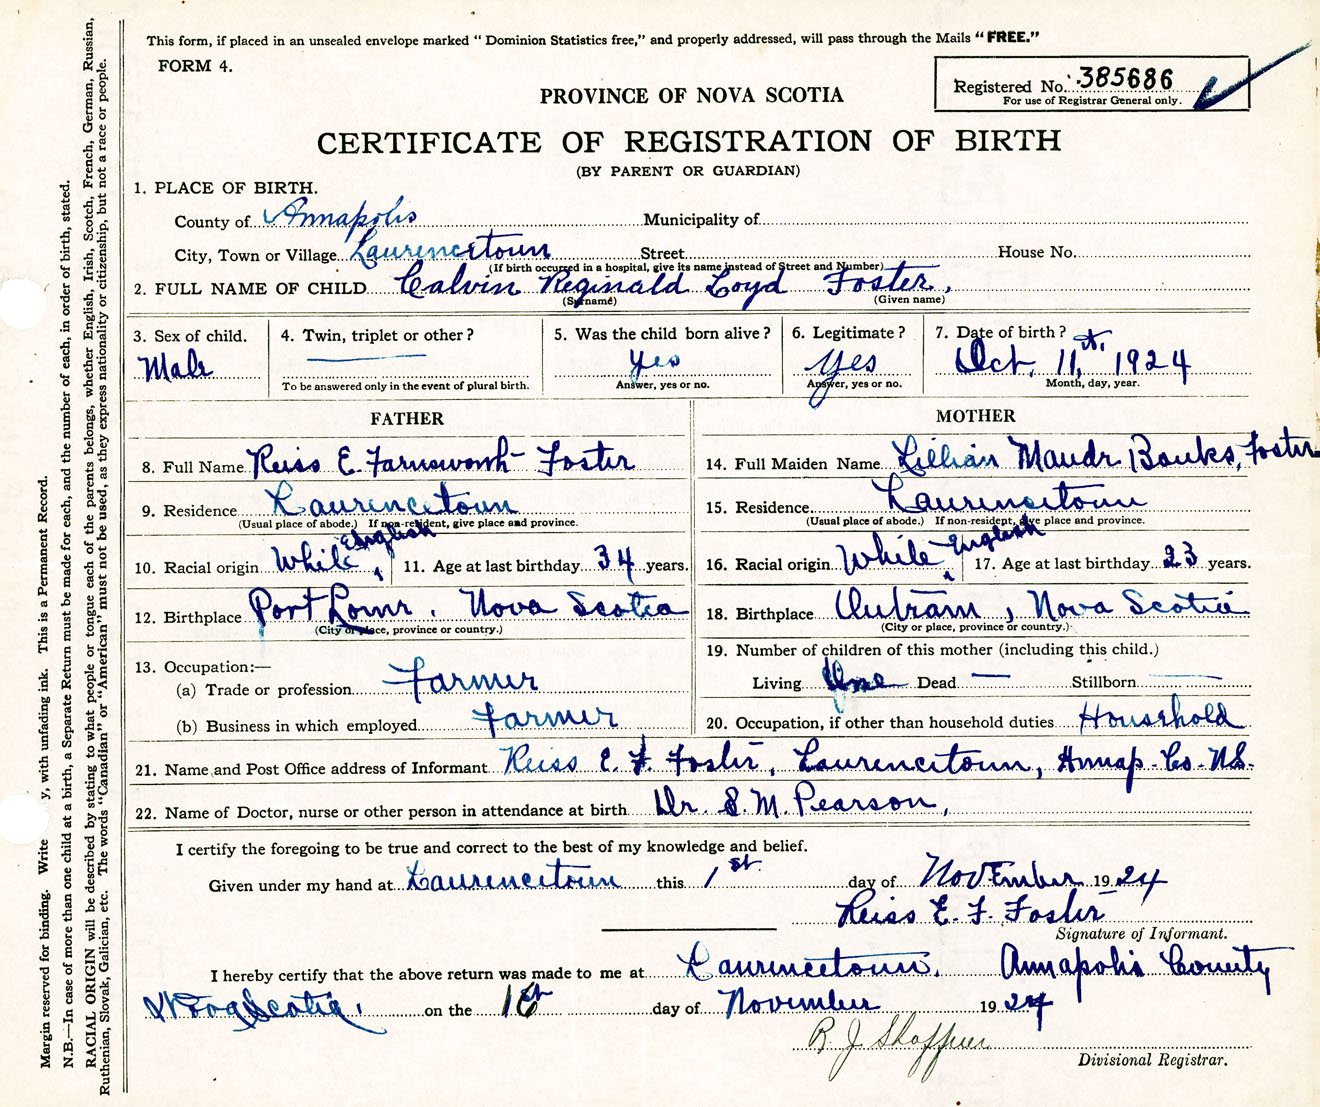 This form, if placed in an unsealed envelope marked " Dominion Statistics free," and properly addressed, will pass through the Mails "FREE."
FORM 4.
Registered No. 385686
For use of Registrar General only.
PROVINCE OF NOVA SCOTIA
CERTIFICATE OF REGISTRATION OF BIRTH
(BY PARENT OR GUARDIAN)
1. PLACE OF BIRTH.
County of Annapolis Municipality of
City, Town or Village Laurencetown Street House No.
(If birth occurred in a hospital, give its name instead of Street and Number)
2. FULL NAME OF CHILD Calvin Reginald Loyd Foster,
(Surname) (Given name)
3. Sex of child. 4. Twin, triplet or other? 5. Was the child born alive? 6. Legitimate? 7. Date of birth?
Male yes Yes Oct. 11th, 1924
To be answered only in the event of plural birth. Answer, yes or no. Answer, yes or no. Month, day, year.
FATHER
8. Full Name Reiss E. Farnsworth Foster
9. Residence Laurencetown
(Usual place of abode.) If non-resident, give place and province.
10. Racial origin White, English 11. Age at last birthday 34 years.
12. Birthplace Port Lorne, Nova Scotia
(City or place, province or country.)
13. Occupation:—
(a) Trade or profession Farmer
(b) Business in which employed Farmer
MOTHER
14. Full Maiden Name Lillian Maude Banks, Foster
15. Residence Laurencetown
(Usual place of abode.) If non-resident, give place and province.
16. Racial origin White English 17. Age at last birthday 23 years.
18. Birthplace Outram, Nova Scotia
(City or place, province or country.)
19. Number of children of this mother (including this child.)
Living One Dead — Stillborn —
20. Occupation, if other than household duties Household
21. Name and Post Office address of Informant Reiss E. F. Foster, Laurencetown, Annap. Co. N.S.
22. Name of Doctor, nurse or other person in attendance at birth Dr. S. M. Pearson,
I certify the foregoing to be true and correct to the best of my knowledge and belief.
Given under my hand at Laurencetown this 1st day of November 1924
Reiss E. F. Foster
Signature of Informant.
I hereby certify that the above return was made to me at Laurencetown, Annapolis County
Nova Scotia, on the 1st day of November 1924
R. J. Shaffner
Divisional Registrar.
Margin reserved for binding. Write y, with unfading ink. This is a Permanent Record.
N.B.—In case of more than one child at a birth, a Separate Return must be made for each, and the number of each, in order of birth, stated.
RACIAL ORIGIN will be described by stating to what people or tongue each of the parents belongs, whether English, Irish, Scotch, French, German, Russian,
Ruthenian, Slovak, Galician, etc. The words "Canadian" or "American" must not be used, as they express nationality or citizenship, but not a race or people.